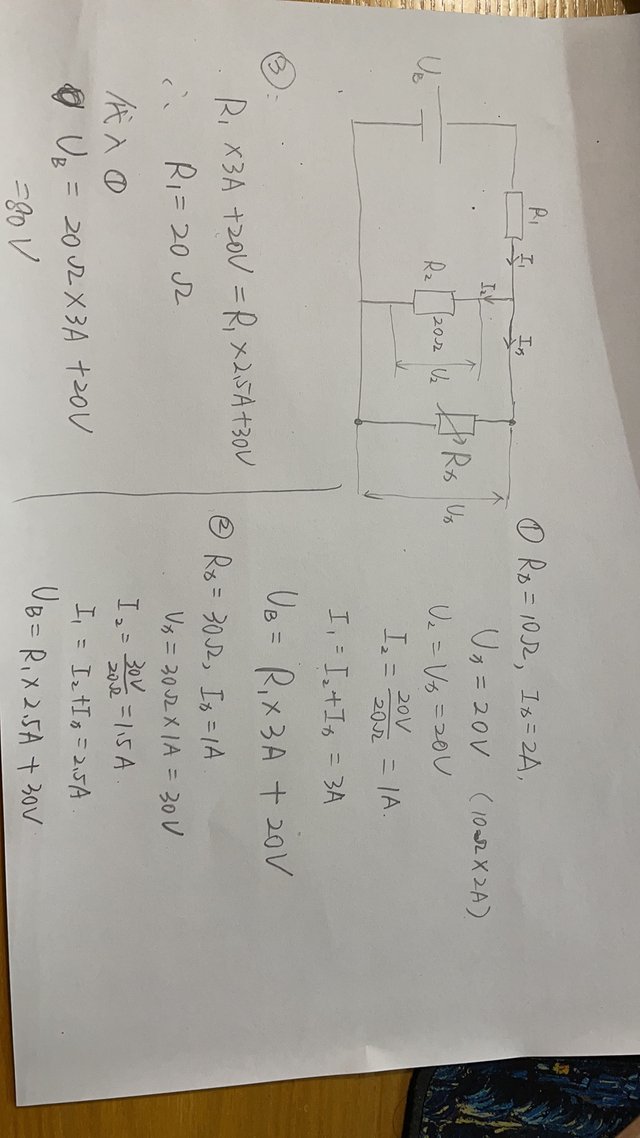 U_B
R₁
I₁
I₂
I_x
R₂
20Ω
U₂
R_x
U_x
① R_x = 10Ω, I_x = 2A,
U_x = 20V (10Ω×2A)
U₂ = U_x = 20V
I₂ = 20V/20Ω = 1A.
I₁ = I₂ + I_x = 3A
U_B = R₁ × 3A + 20V
② R_x = 30Ω, I_x = 1A.
U_x = 30Ω×1A = 30V
I₂ = 30V/20Ω = 1.5A.
I₁ = I₂ + I_x = 2.5A.
U_B = R₁ × 2.5A + 30V.
③:
R₁ × 3A + 20V = R₁ × 2.5A + 30V
∴ R₁ = 20Ω
代入①
U_B = 20Ω × 3A + 20V
= 80V